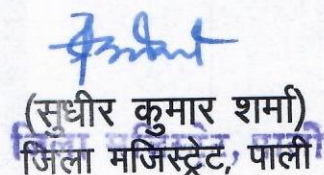 (सुधीर कुमार शर्मा)
जिला मजिस्ट्रेट, पाली